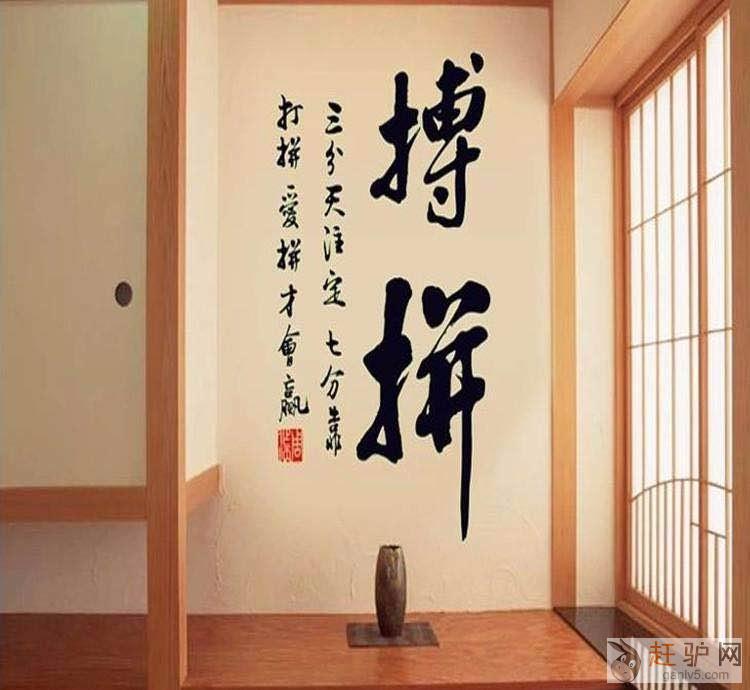 搏拼
三分天注定 七分靠
打拼 愛拼才會贏
赶驴网
ganlv5.com